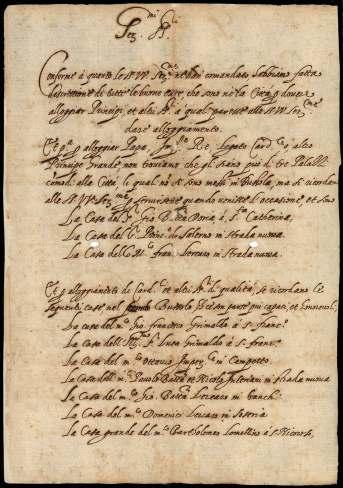 Ser.mi S.ri
Conforme à quanto le SS. VV. Ser.me ne han comandato habbiamo fatta
descrittione di tutte le buone case che sono nè la Città p dovere
alloggiar Prencipi et altri S.ri à quai paresse alle SS. VV. Ser.me
dare alloggiamento.
Et p.a p alloggiar Papa, Imp.re Rè, Legato Card.le o altro
Principe Grande non troviamo che gli siano più di tre Palassi
comodi alla Città le quai nō si sono messe in Bussola, ma si ricordano
alle SS. VV. Ser.me p servirsene quando venisse l'occasione, et sono
La Casa del S. Gio Batta Doria à S.ta Catherina
La Casa del S. Prencipe di Salerno in strada nuova
La Casa dello M.co Fran. Lercaro in strada nuova.
Et p alloggiamento di Card.li et altri S.ri di qualità si ricordano le
seguenti case nel Bussolo Picciol parse più capaci, et honorevoli
La casa del m.co Gio. Francesco Grimaldo à S. Franc.co
La Casa dell Ill. S. Luca Grimaldo à S. Franc.co
La Casa del m.co Ottavio Imper.le in Campetto
La Casa delli m.ci Paulo Batta et Nicola Interiani in strada nuova
La Casa del m.co Gio. Batta Lercaro in banchi
La Casa del m.co Domenico Lercaro in Soseria
La Casa grande del m.co Bartolomeo Lomellino à S.